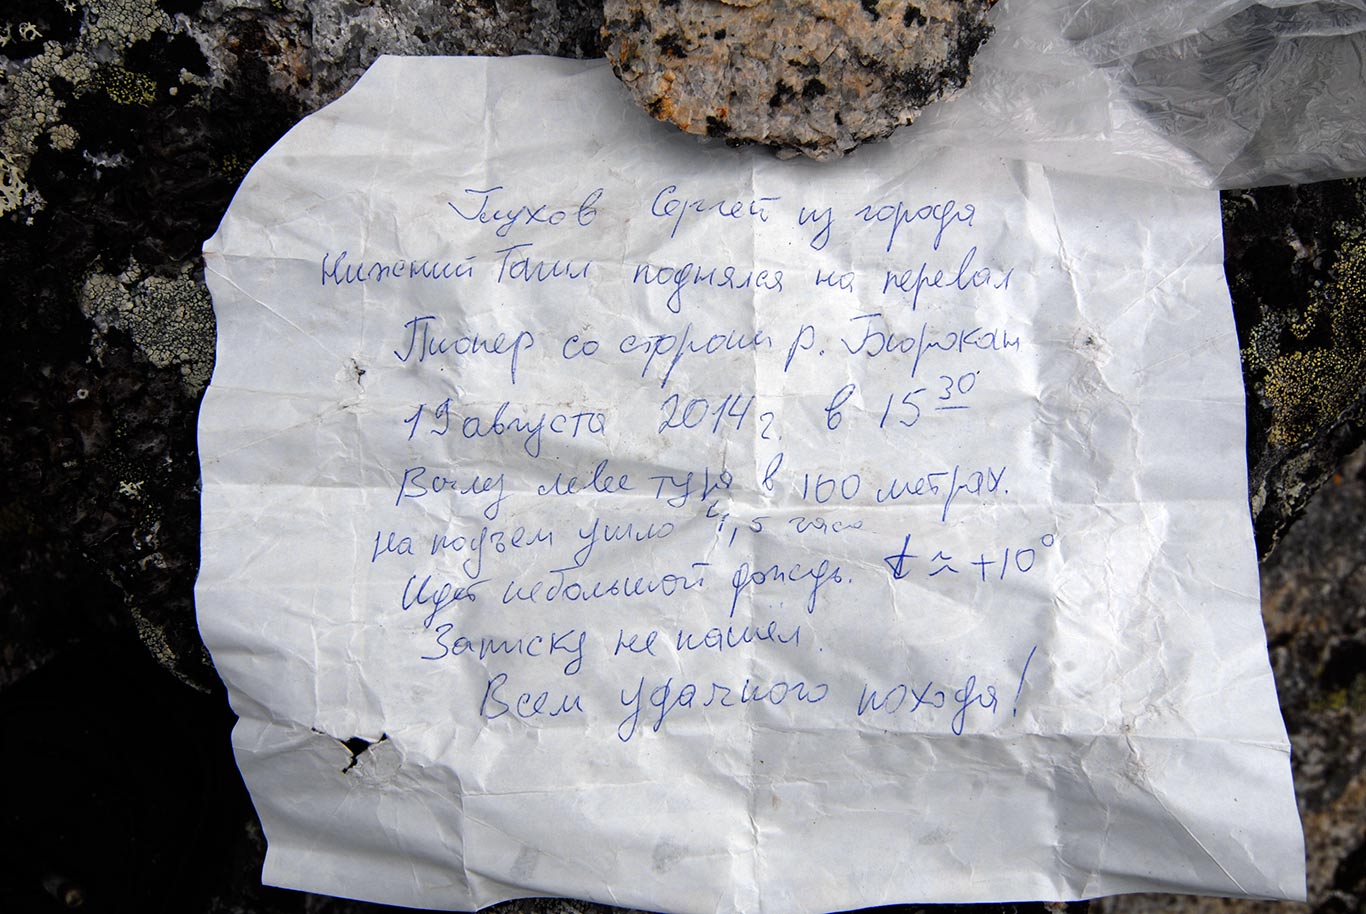 Глухов Сергей из города
Нижний Тагил поднялся на перевал
Пионер со стороны р. Бюрокан
19 августа 2014 г. в 15 30
Вылез левее тура в 100 метрах.
На подъем ушло 1,5 часа
Идет небольшой дождь. t ≈ +10°
Записку не нашёл.
Всем удачного похода!